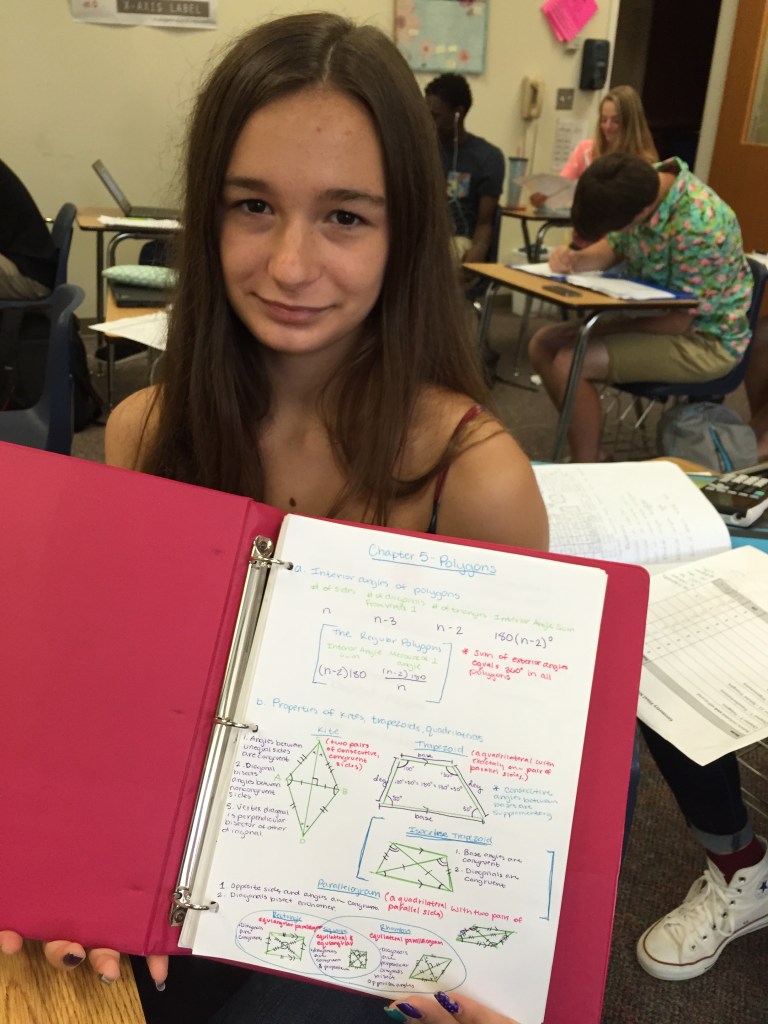 X-AXIS LABEL
Chapter 5 - Polygons
a. Interior angles of polygons
# of sides # of diagonals # of triangles Interior Angle Sum
n n-3 n-2 180(n-2)°
The Regular Polygons
Interior Angle Sum Measure of 1 angle
(n-2)180 (n-2)180
n
* Sum of exterior angles
equals 360° in all
polygons
b. Properties of kites, trapezoids, quadrilaterals
Kite
(two pairs
of consecutive,
congruent
sides)
1. Angles between
unequal sides
are congruent
2. Diagonal
bisects
angles between
noncongruent
sides
diagonal
is perpendicular
bisector of other
diagonal
A
B
D
Trapezoid
(a quadrilateral with
exactly one pair of
parallel sides)
base
leg
leg
base
* Consecutive
angles between
bases are
supplementary
Isosceles Trapezoid
1. Base angles are
congruent
2. Diagonals are
congruent
Parallelogram (a quadrilateral with two pair of
parallel sides)
1. opposite sides and angles are congruent
2. Diagonals bisect each other
Rectangle
equiangular parallelogram
Diagonals
are
congruent
Squares
equilateral &
equiangular
Diagonals
are
congruent
& perpendicular
Rhombus
equilateral parallelogram
Diagonals
are
perpendicular
bisect
opposite angles